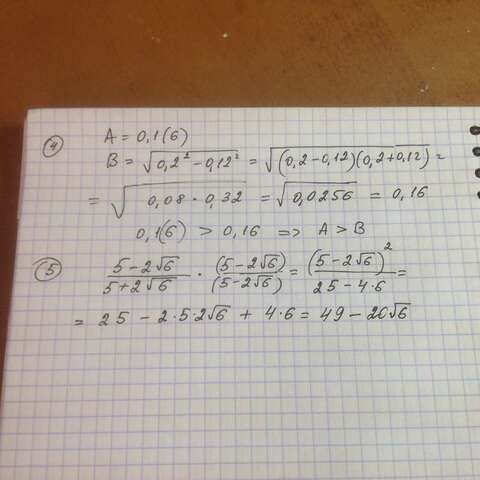 ④ A = 0,1(6)
B = √(0,2² − 0,12²) = √((0,2 − 0,12)(0,2 + 0,12)) =
= √(0,08 · 0,32) = √0,0256 = 0,16
0,1(6) > 0,16 => A > B
⑤ (5 − 2√6)/(5 + 2√6) · (5 − 2√6)/(5 − 2√6) = (5 − 2√6)²/(25 − 4·6) =
= 25 − 2·5·2√6 + 4·6 = 49 − 20√6